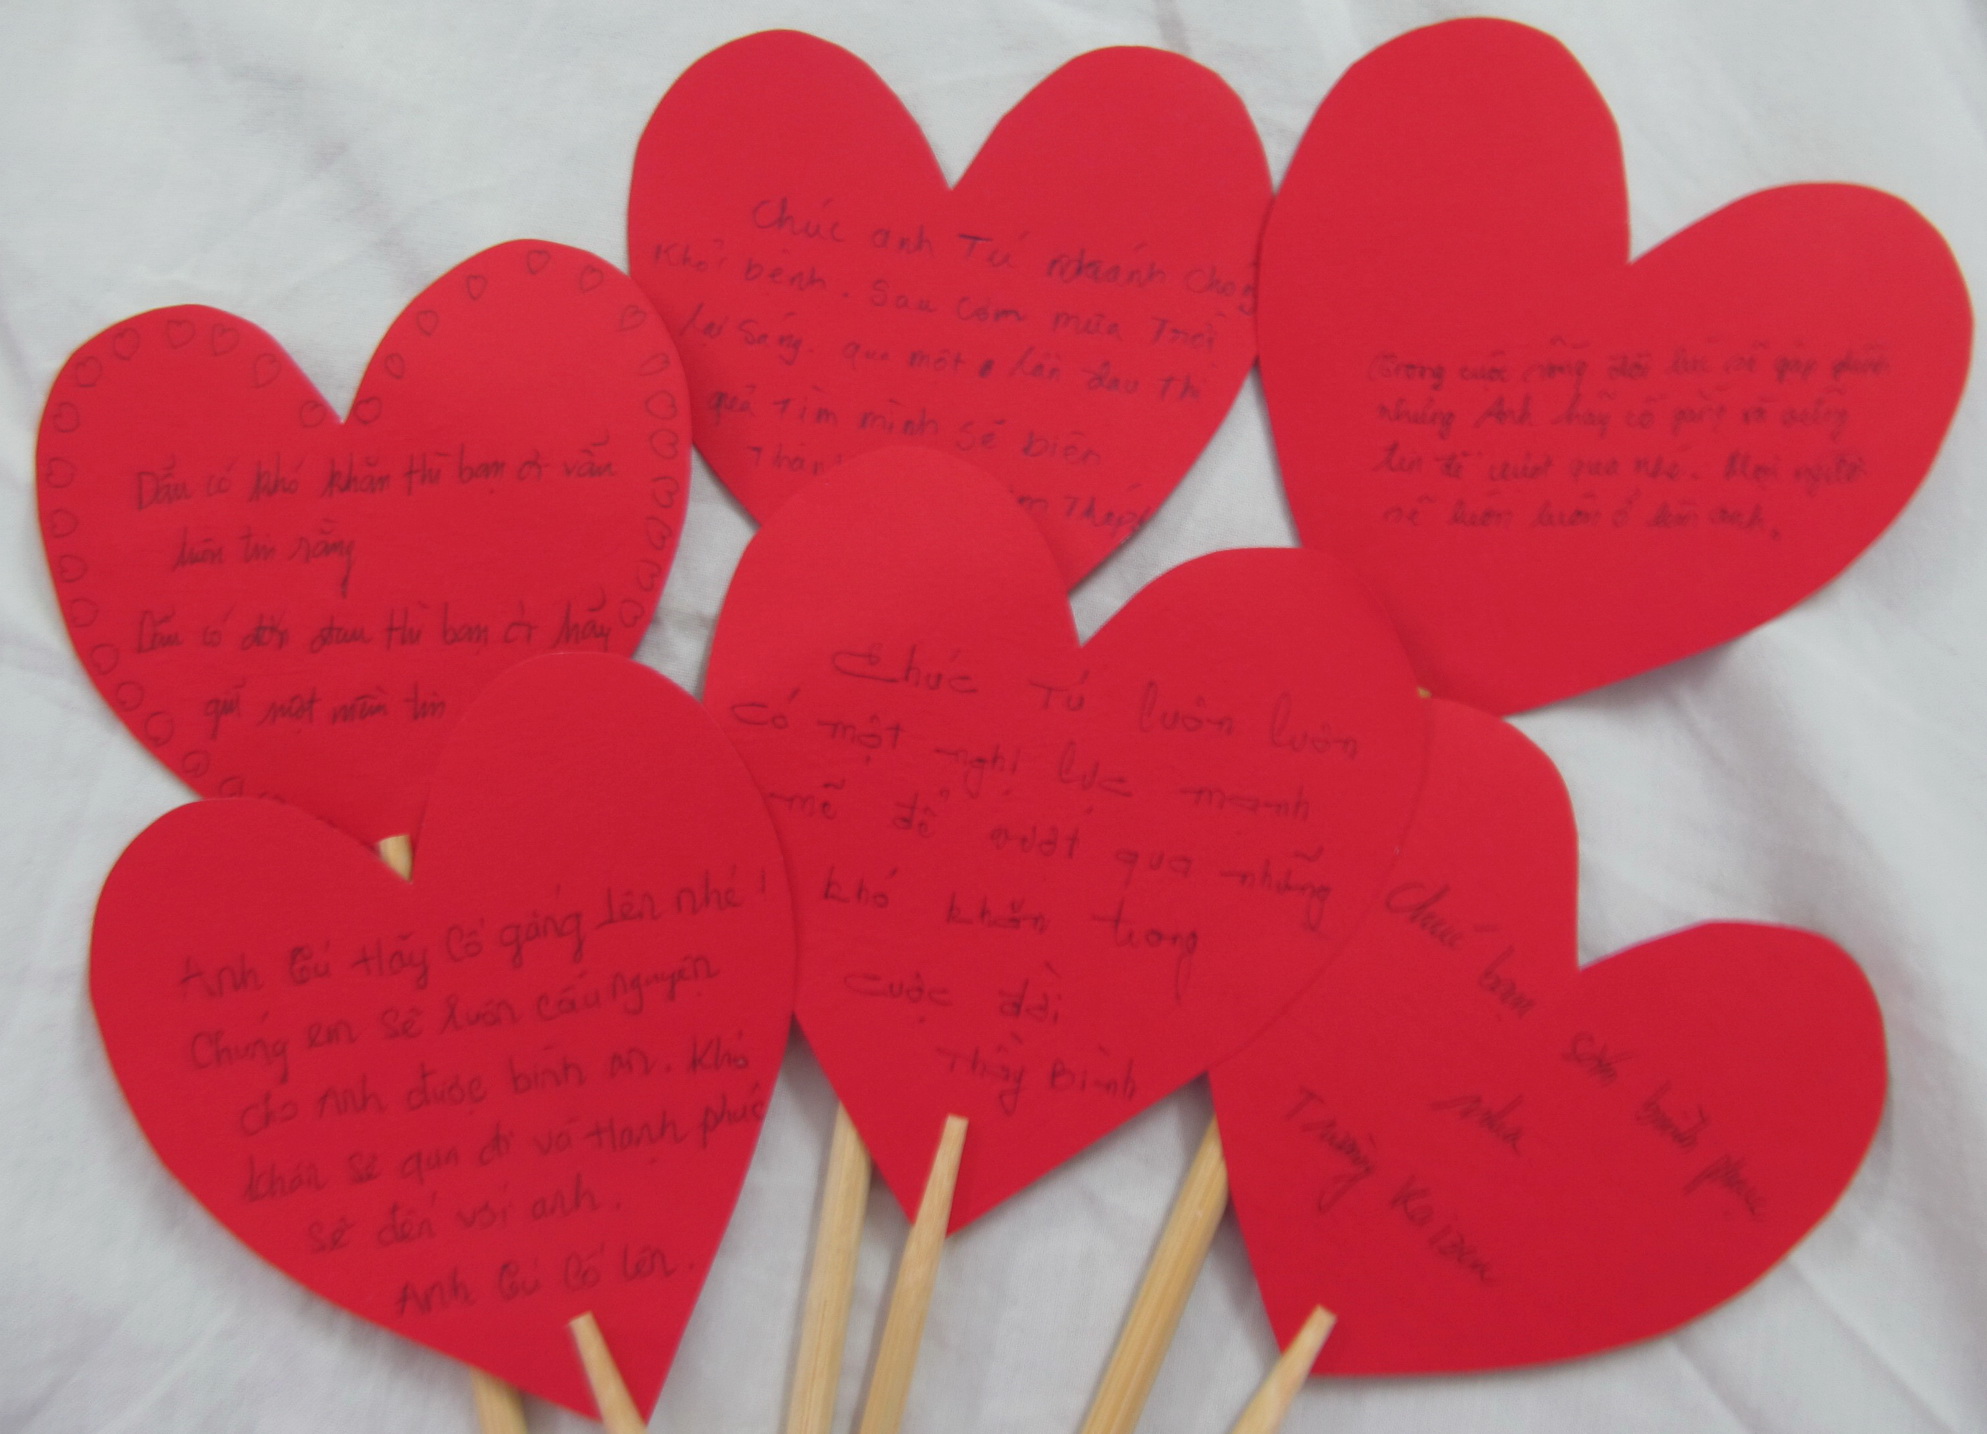 Chúc anh Tú nhanh chóng
khỏi bệnh. Sau cơn mưa trời
lại sáng. qua một lần đau th
quả tim mình sẽ biến
thàn
m thép
Trong cuộc sống đôi lúc sẽ gặp
nhưng Anh hãy cố gắng và
lên để vượt qua nhé. Mọi người
sẽ luôn luôn ở bên anh.
Dẫu có khó khăn thì bạn ơi vẫn
luôn tin rằng
Dẫu có đớn đau thì bạn ơi hãy
giữ một niềm tin
Chúc Tú luôn luôn
có một nghị lực mạnh
mẽ để vượt qua những
khó khăn trong
cuộc đời
Thầy Bình
Anh Tú Hãy Cố gắng lên nhé!
Chúng em sẽ luôn cầu nguyện
cho Anh được bình an. Khó
khăn sẽ qua đi và Hạnh phúc
sẽ đến với anh.
Anh Tú Cố lên.
Chúc bạn sớm bình phục
nha
Trường Kaizen